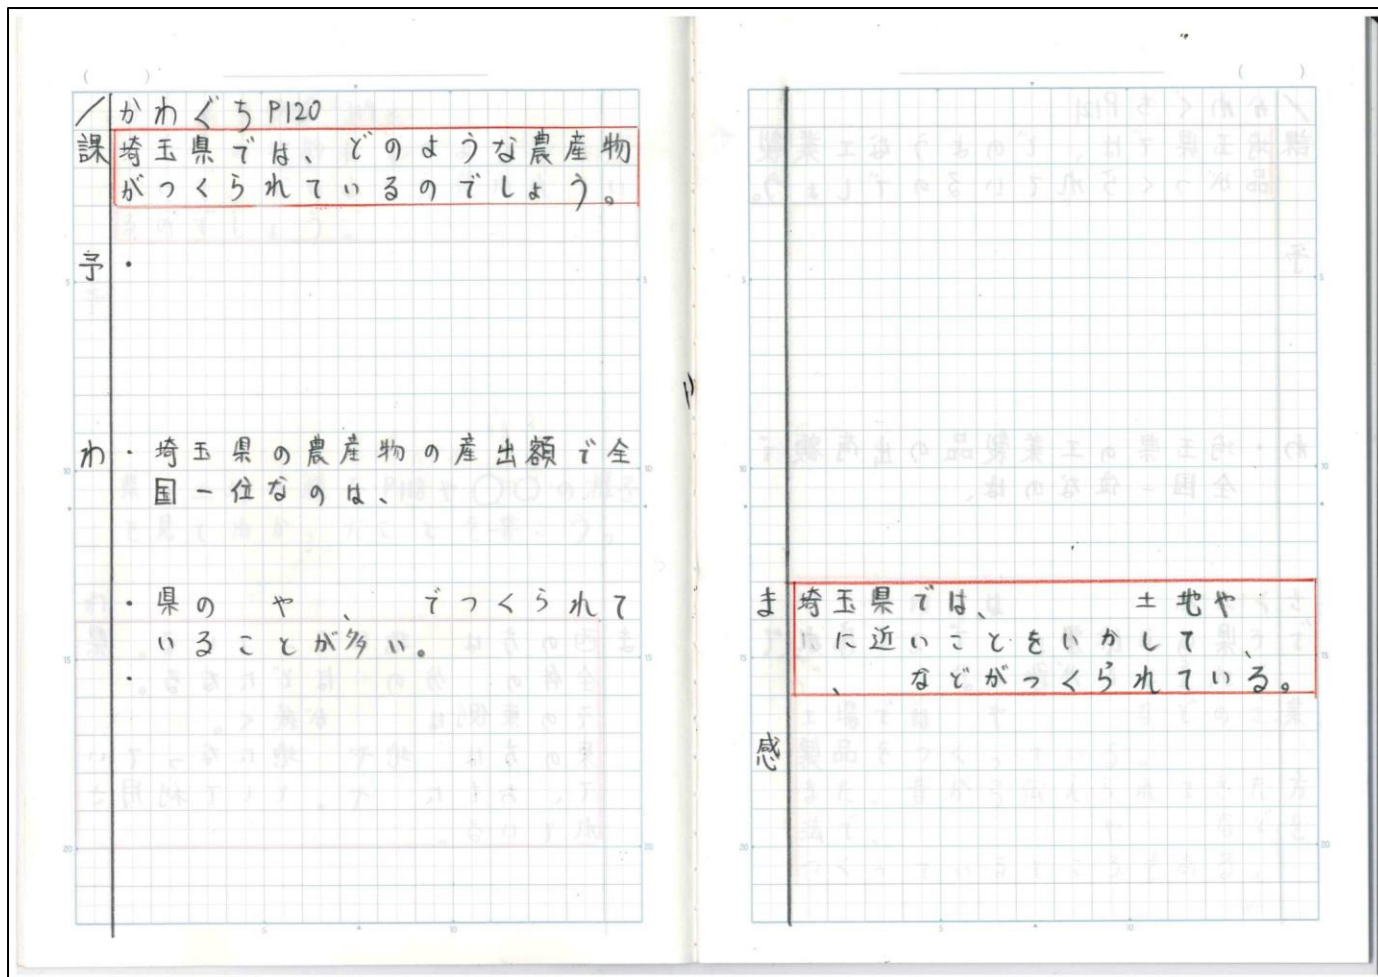 ( )
／ かわぐちP120
課 埼玉県では、どのような農産物
がつくられているのでしょう。
予 ・
わ ・埼玉県の農産物の産出額で全
国一位なのは、
・県の や 、 でつくられて
いることが多い。
・
( )
ま 埼玉県では、 土地や
に近いことをいかして、
、 などがつくられている。
感